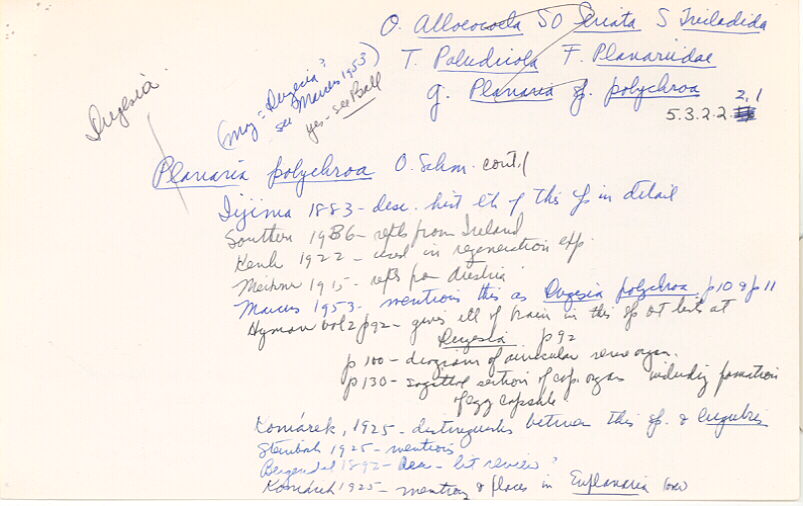 O. Allococoela SO Seriata S Tricladida
T. Paludicola F. Planariidae
g. Planaria sp. polychroa
5.3.2.2 2,1
Dugesia
(may = Dugesia?
see Marcus 1953)
yes - see Ball
Planaria polychroa O. Schm. cont.(
Iijima 1883 - desc. hist etc of this sp in detail
Southern 1936 - repts from Ireland
Kenk 1922 - used in regeneration exp.
Meixner 1915 - repts from Austria
Marcus 1953 - mentions this as Dugesia polychroa, p10 & p11
Hyman vol 2 p92 - gives ill of brain in this sp or lists at
Dugesia p92
p 100 - diagram of auricular sense organ.
p 130 - sagittal section of cop. organs including formation
of egg capsule
Komárek, 1925 - distinguishes between this sp. & lugubris
Steinböck 1925 - mentions
Bergendal 1892 - desc - lit review?
Komárek 1925 - mentions & places in Euplanaria